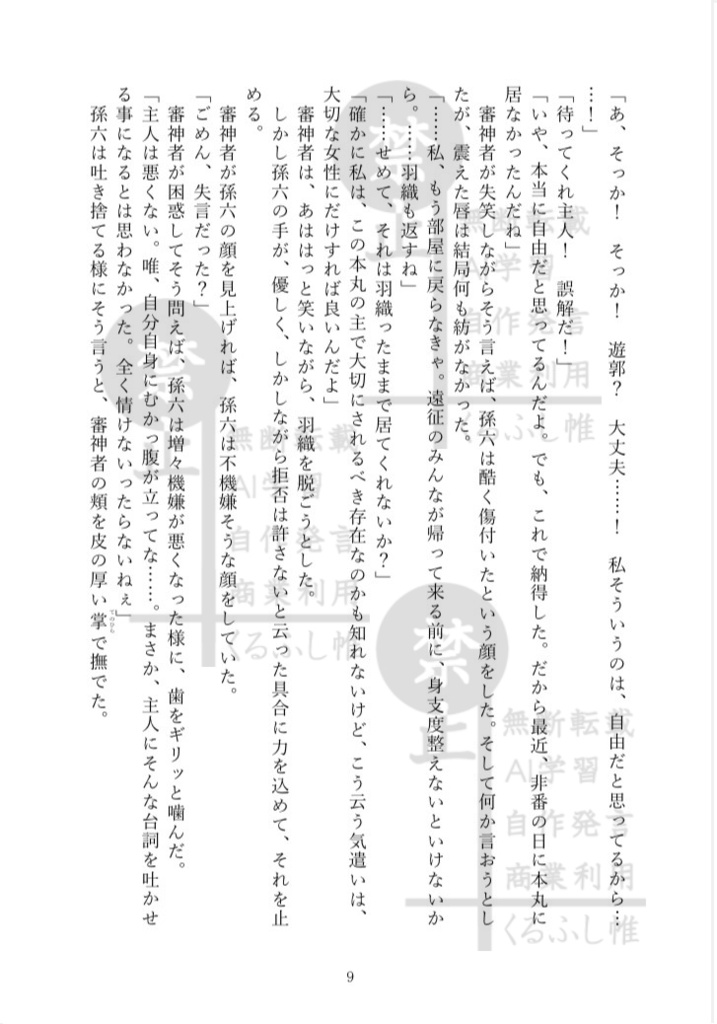 「あ、そっか！　そっか！　遊郭？　大丈夫……！　私そういうのは、自由だと思ってるから…
…！」
「待ってくれ主人！　誤解だ！」
「いや、本当に自由だと思ってるんだよ。でも、これで納得した。だから最近、非番の日に本丸に
居なかったんだね」
　審神者が失笑しながらそう言えば、孫六は酷く傷付いたという顔をした。そして何か言おうとし
たが、震えた唇は結局何も紡がなかった。
「……私、もう部屋に戻らなきゃ。遠征のみんなが帰って来る前に、身支度整えないといけないか
ら。……羽織も返すね」
「……せめて、それは羽織ったままで居てくれないか？」
「確かに私は、この本丸の主で大切にされるべき存在なのかも知れないけど、こう云う気遣いは、
大切な女性にだけすれば良いんだよ」
　審神者は、あははっと笑いながら、羽織を脱ごうとした。
　しかし孫六の手が、優しく、しかしながら拒否は許さないと云った具合に力を込めて、それを止
める。
　審神者が孫六の顔を見上げれば、孫六は不機嫌そうな顔をしていた。
「ごめん、失言だった？」
　審神者が困惑してそう問えば、孫六は増々機嫌が悪くなった様に、歯をギリッと噛んだ。
「主人は悪くない。唯、自分自身にむかっ腹が立ってな……。まさか、主人にそんな台詞を吐かせ
る事になるとは思わなかった。全く情けないったらないねぇ」
　孫六は吐き捨てる様にそう言うと、審神者の頬を皮の厚い掌で撫でた。
てのひら
9
禁止
無断転載
AI学習
自作発言
商業利用
くるふし帷
禁止
無断転載
AI学習
自作発言
商業利用
くるふし帷
禁止
無断転載
AI学習
自作発言
商業利用
くるふし帷